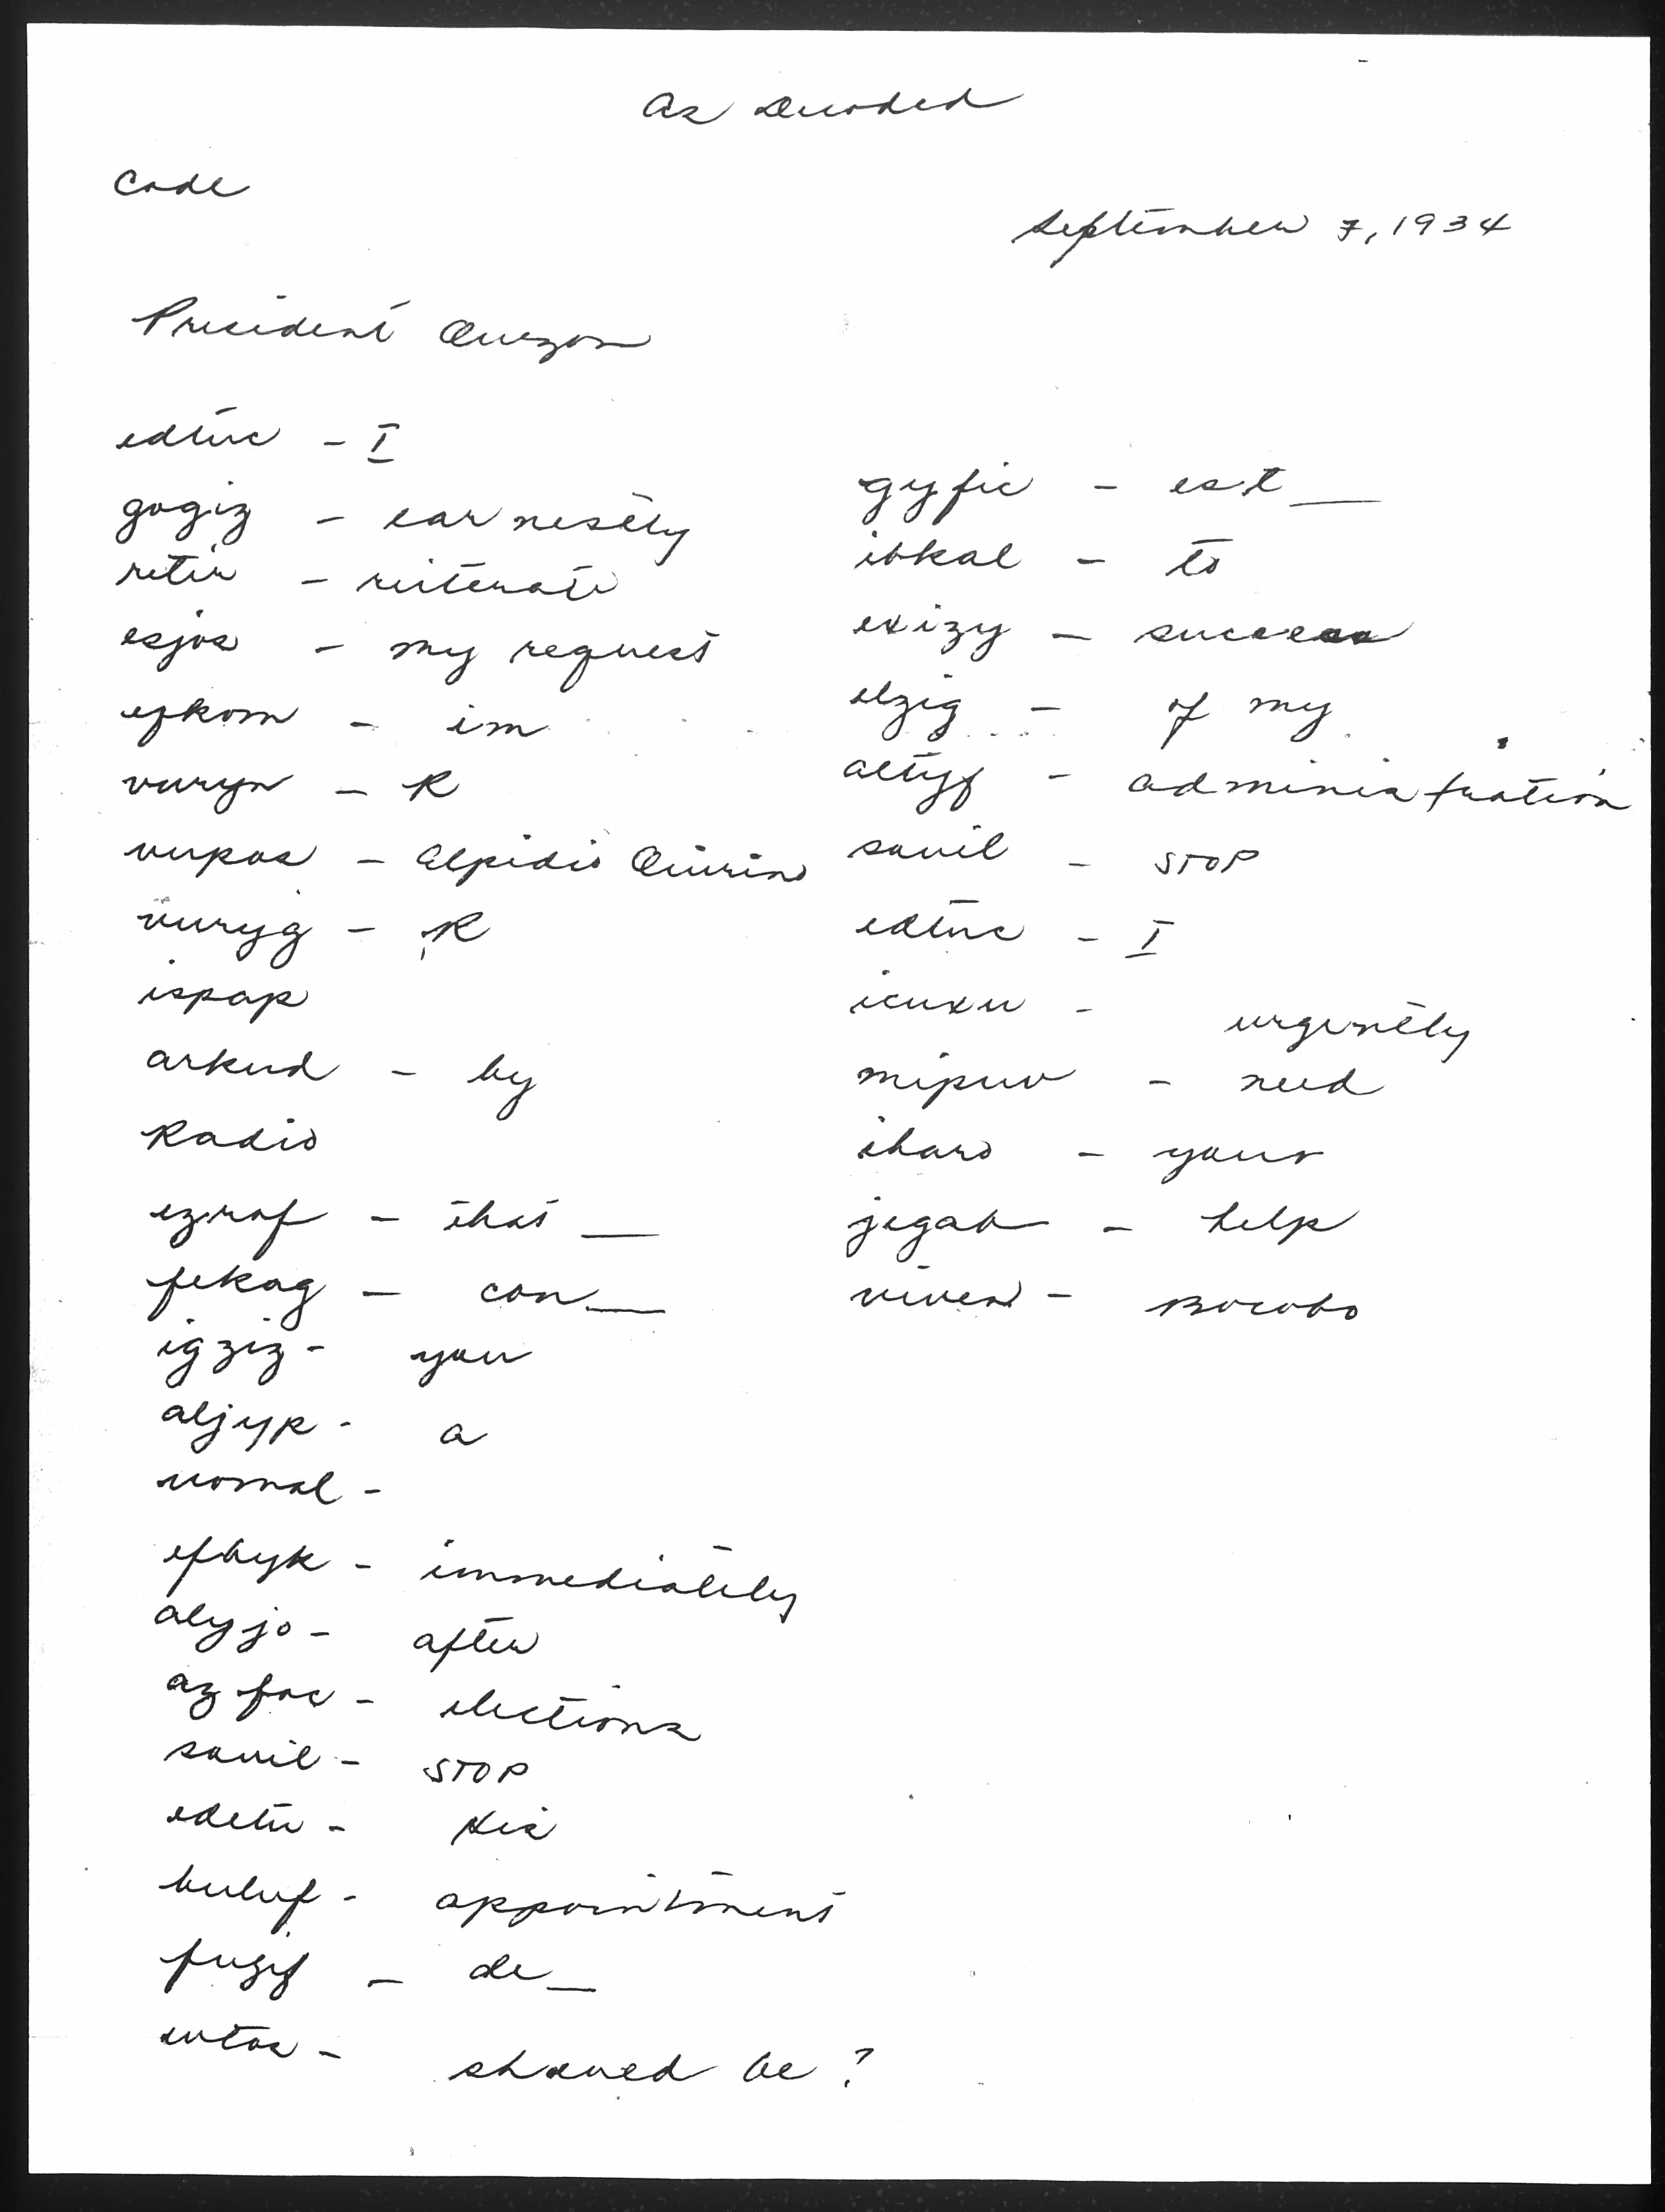 As Decoded
Code
September 7, 1934
President Quezon
edtuc - I
gogiz - earnestly
retir - reiterate
esjos - my request
efkom - im
vuryn - R
vupos - Elpidio Quirino
vuryg - R
ispap
arkud - by
Radio
ezraf - that __
fekag - con__
igziz - you
aljyp - a
uomal -
efbyk - immediately
alyjo - after
azfoc - elections
sovil - STOP
edetu - His
buluf - appointment
fugif - de__
evtos - should be?
gyfic - est__
ibkal - to
exizy - success
elzig - of my
altyf - administration
sovil - STOP
edtuc - I
icuxu - urgently
mipuv - need
iharo - your
jegab - help
viven - Bocobo